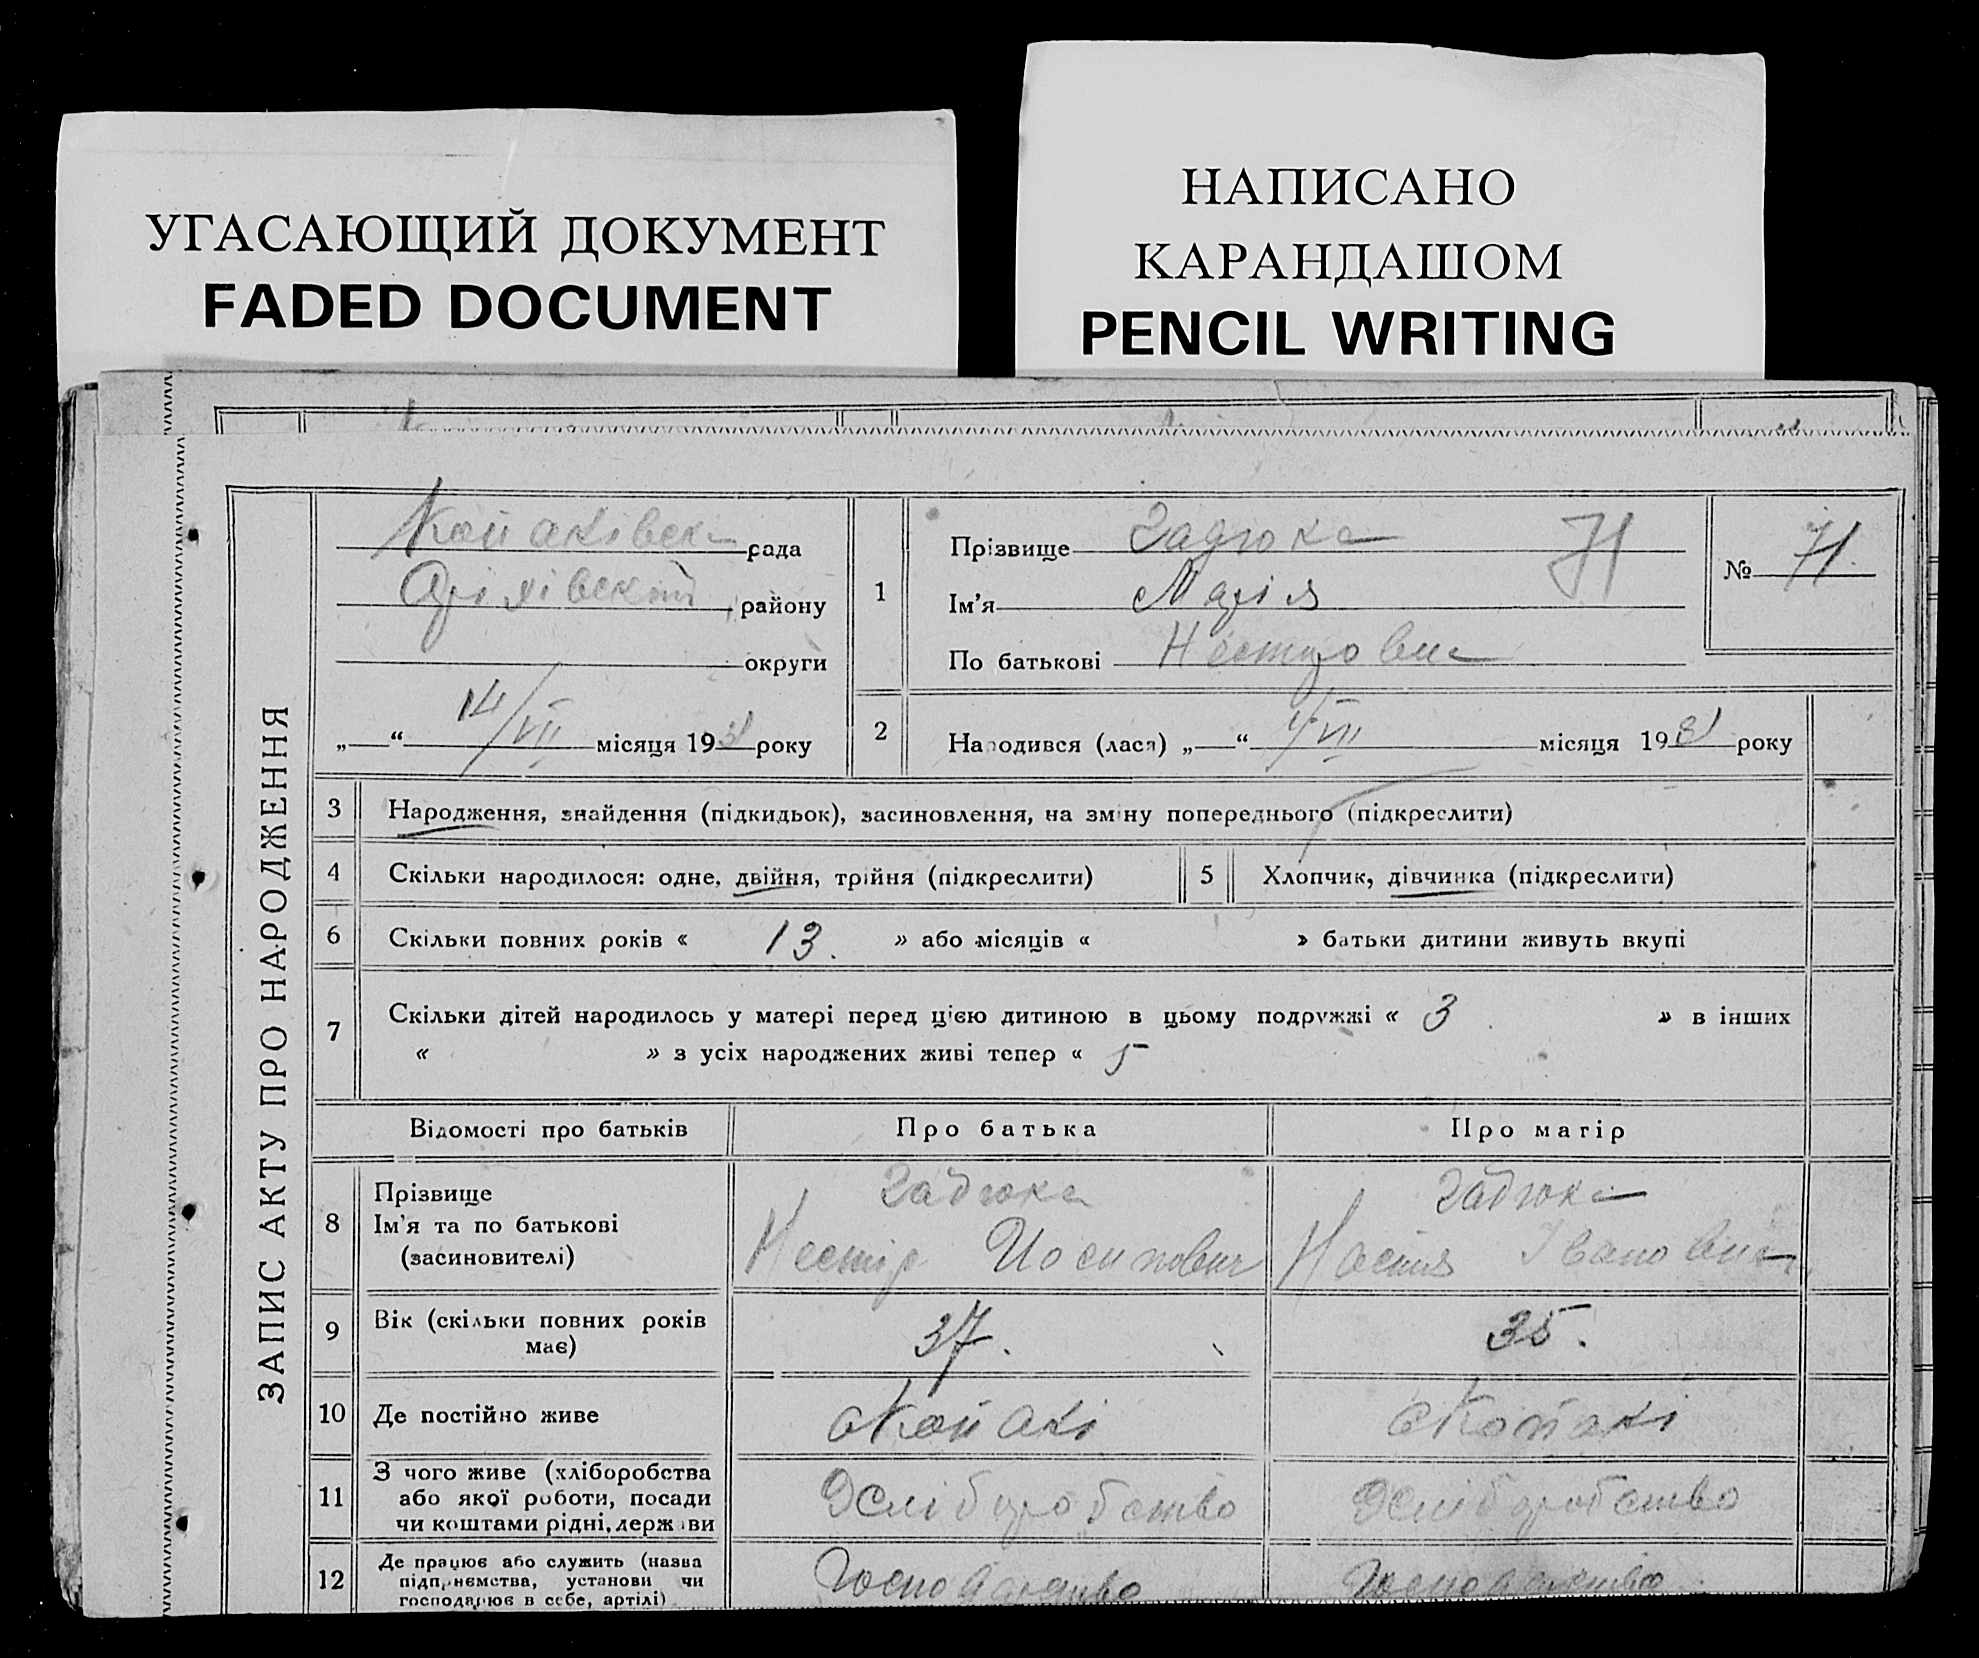 УГАСАЮЩИЙ ДОКУМЕНТ
FADED DOCUMENT
НАПИСАНО
КАРАНДАШОМ
PENCIL WRITING
ЗАПИС АКТУ ПРО НАРОДЖЕННЯ
рада
району
округи
14/VII місяця 1931 року
1
Прізвище Гадюка 71
Ім'я Марія
По батькові Несторовна
№ 71.
2
Народився (лася) „ “ VII місяця 1931 року
3 Народження, знайдення (підкидьок), засиновлення, на зміну попереднього (підкреслити)
4 Скільки народилося: одне, двійня, трійня (підкреслити)
5 Хлопчик, дівчинка (підкреслити)
6 Скільки повних років « 13. » або місяців « » батьки дитини живуть вкупі
7 Скільки дітей народилось у матері перед цією дитиною в цьому подружжі « 3 » в інших
« » з усіх народжених живі тепер « 5
Відомості про батьків Про батька Про матір
8 Прізвище
Ім'я та по батькові
(засиновителі)
Гадюка
Нестір Йосипович
Гадюка
Настя Івановна
9 Вік (скільки повних років
має)
37.
35.
10 Де постійно живе
11 З чого живе (хліборобства
або якої роботи, посади
чи коштами рідні, держави
Хліборобство
Хліборобство
12 Де працює або служить (назва
підприємства, установи чи
господарює в себе, артілі)